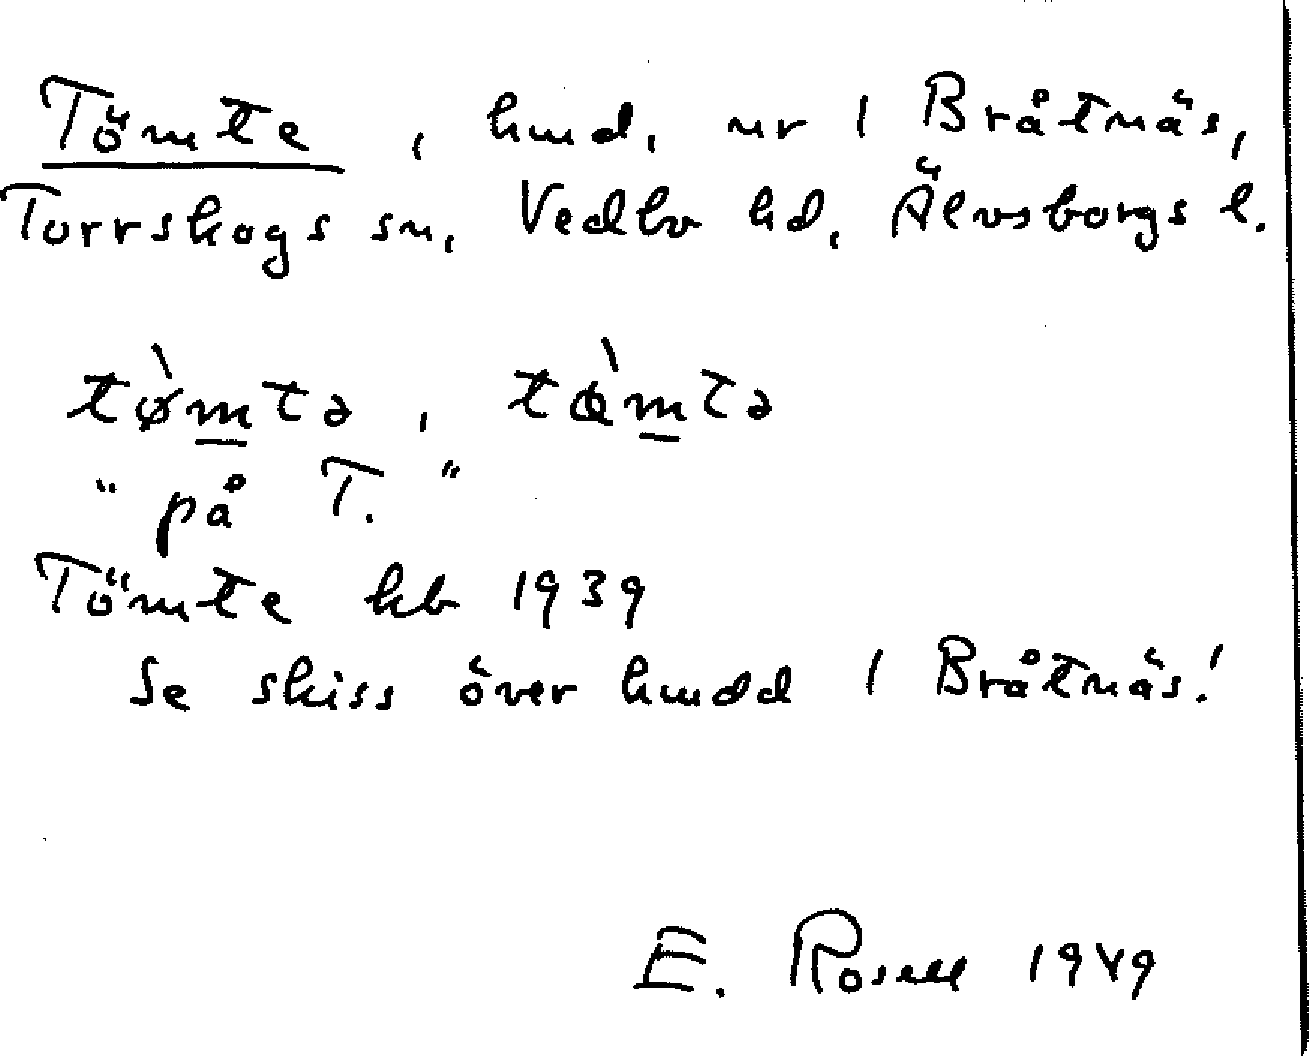 Tömte, hmd, nr 1 Bråtnäs,
Torrskogs sn, Vedbo hd, Älvsborgs l.
tø̀mtə, tàmtə
"på T."
Tömte kb 1939
Se skiss över hmdd 1 Bråtnäs!
E. Rosell 1949